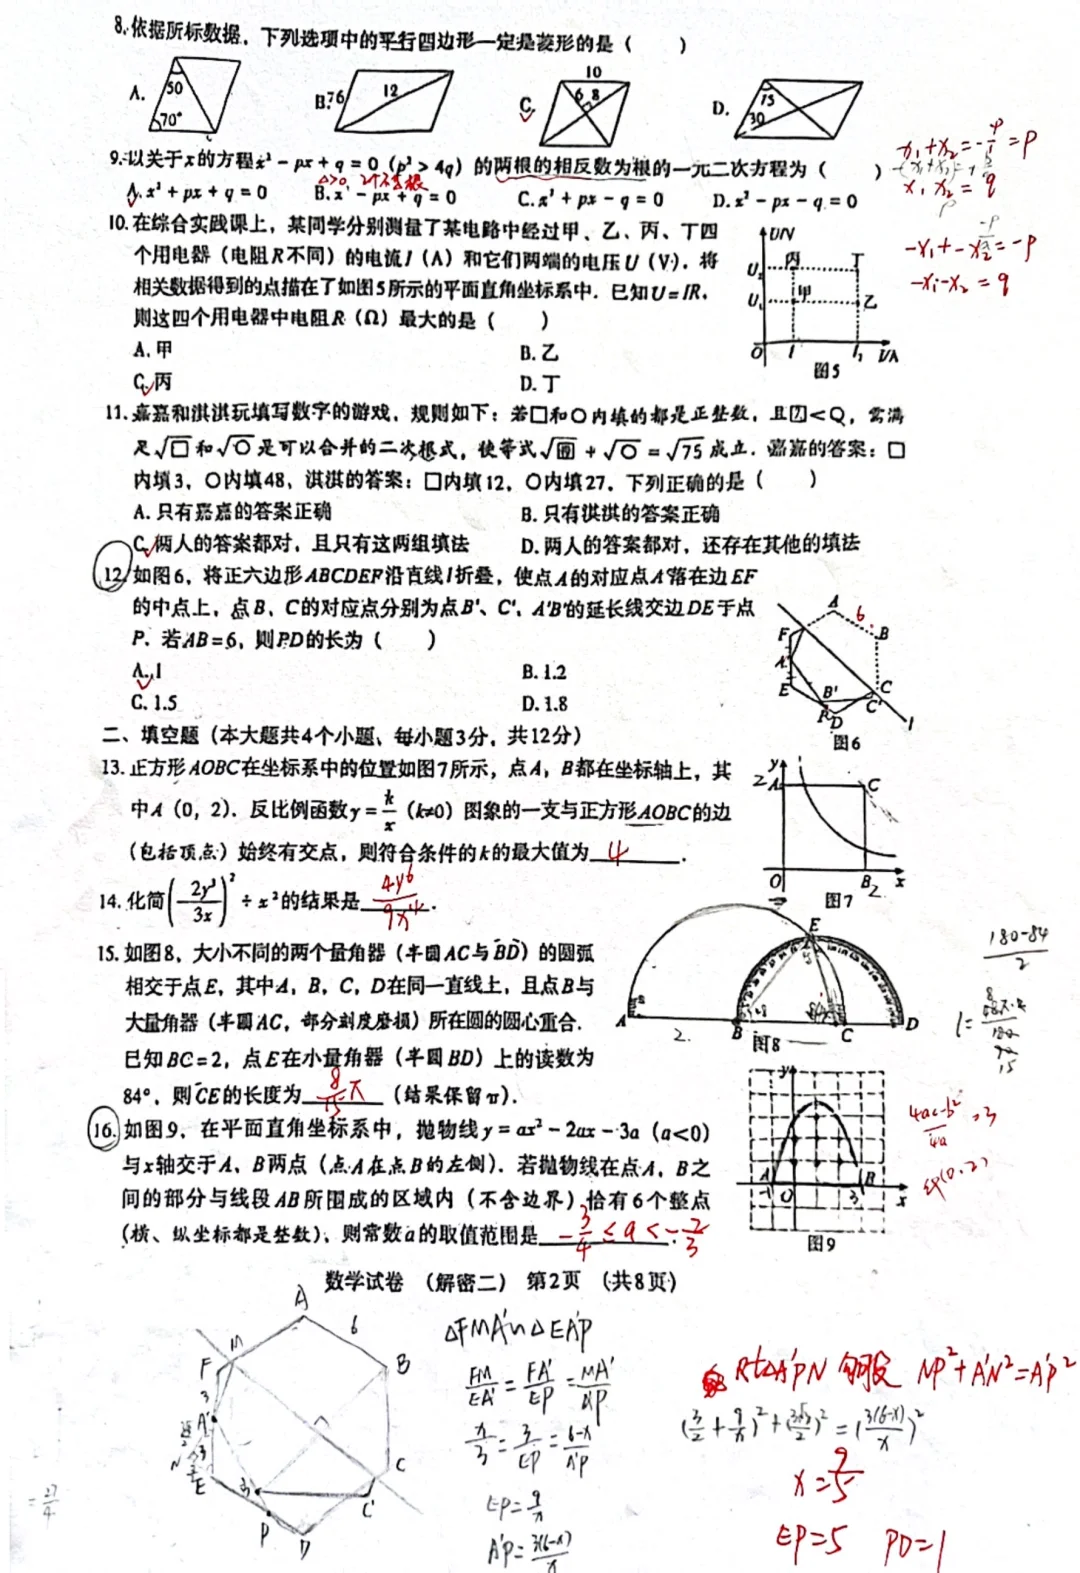 8. 依据所标数据，下列选项中的平行四边形一定是菱形的是（　　）
A. 50 70°
B. 76 12
C. 10 6 8
D. 75 30
9. 以关于x的方程x² - px + q = 0 (p² > 4q) 的两根的相反数为根的一元二次方程为（　　）
△>0, 2个不等根
A. x² + px + q = 0 B. x² - px + q = 0 C. x² + px - q = 0 D. x² - px - q = 0
x₁+x₂=-\frac{-p}{1}=p
x₁x₂=q
-x₁+-x₂=-p
-x₁·-x₂=q
10. 在综合实践课上，某同学分别测量了某电路中经过甲、乙、丙、丁四
个用电器（电阻R不同）的电流I（A）和它们两端的电压U（V），将
相关数据得到的点描在了如图5所示的平面直角坐标系中．已知U=IR，
则这四个用电器中电阻R（Ω）最大的是（　　）
A. 甲 B. 乙
C. 丙 D. 丁
U/V
U₂ 丙 丁
U₁ 甲 乙
O I I₁ I/A
图5
11. 嘉嘉和淇淇玩填写数字的游戏，规则如下：若□和○内填的都是正整数，且□<○，需满
足√□和√○是可以合并的二次根式，使等式√□ + √○ = √75成立．嘉嘉的答案：□
内填3，○内填48，淇淇的答案：□内填12，○内填27．下列正确的是（　　）
A. 只有嘉嘉的答案正确 B. 只有淇淇的答案正确
C. 两人的答案都对，且只有这两组填法 D. 两人的答案都对，还存在其他的填法
12. 如图6，将正六边形ABCDEF沿直线l折叠，使点A的对应点A'落在边EF
的中点上，点B，C的对应点分别为点B'、C'，A'B'的延长线交边DE于点
P．若AB=6，则PD的长为（　　）
A. 1 B. 1.2
C. 1.5 D. 1.8
A 6 B F A' E B' C C' P D l
图6
二、填空题（本大题共4个小题，每小题3分，共12分）
13. 正方形AOBC在坐标系中的位置如图7所示，点A，B都在坐标轴上，其
中A（0，2）．反比例函数y = \frac{k}{x}（k≠0）图象的一支与正方形AOBC的边
（包括顶点）始终有交点，则符合条件的k的最大值为 4 ．
y 2 A C O B 2 x
图7
14. 化简(\frac{2y³}{3x})² ÷ x²的结果是 \frac{4y⁶}{9x⁴} ．
15. 如图8，大小不同的两个量角器（半圆AC与BD）的圆弧
相交于点E，其中A，B，C，D在同一直线上，且点B与
大量角器（半圆AC，部分刻度磨损）所在圆的圆心重合．
已知BC=2，点E在小量角器（半圆BD）上的读数为
84°，则CE的长度为 \frac{8}{15}π （结果保留π）．
E A 2. B C D
图8
\frac{180-84}{2}
16. 如图9，在平面直角坐标系中，抛物线y = ax² - 2ax - 3a（a<0）
与x轴交于A、B两点（点A在点B的左侧）．若抛物线在点A，B之
间的部分与线段AB所围成的区域内（不含边界）恰有6个整点
（横、纵坐标都是整数），则常数a的取值范围是 -\frac{3}{4}≤a<-\frac{2}{3} ．
y A -1 O 3 B x
图9
\frac{4ac-b²}{4a} =3
(0,2)
数学试卷 （解密二） 第2页 （共8页）
A 6 B M F 3 A' 3 N E C C' P D
△FMA'∽△EA'P
\frac{FM}{EA'}=\frac{FA'}{EP}=\frac{MA'}{A'P}
\frac{x}{3}=\frac{3}{EP}=\frac{6-x}{A'P}
EP=\frac{9}{x}
A'P=\frac{3(6-x)}{x}
Rt△A'PN 勾股 NP²+A'N²=A'P²
(\frac{3}{2}+\frac{9}{x})²+(\frac{3√3}{2})²=(\frac{3(6-x)}{x})²
x=\frac{9}{5}
EP=5 PD=1
=\frac{27}{4}